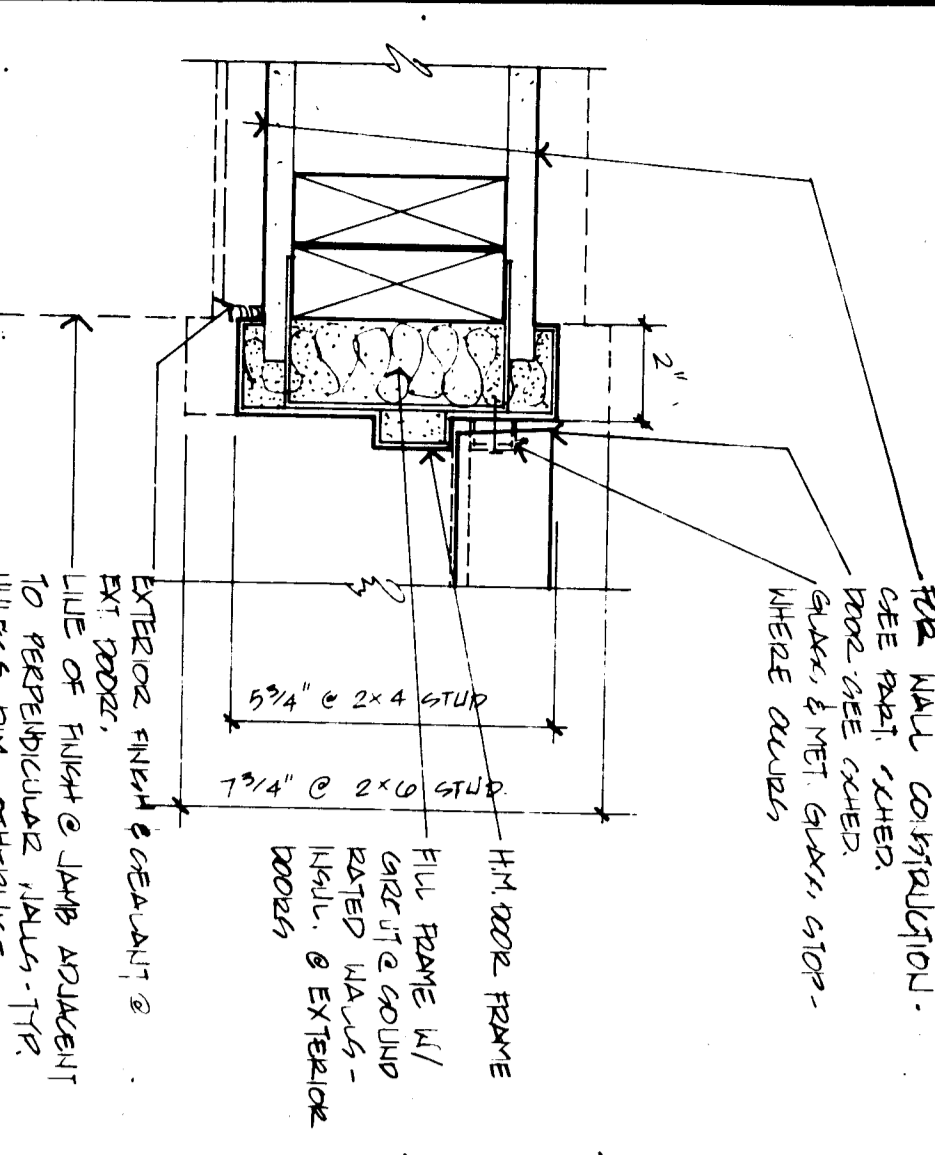 FOR WALL CONSTRUCTION -
SEE PART. SCHED.
DOOR - SEE SCHED.
GLASS, & MET. GLASS, STOP -
WHERE OCCURS
2"
5 3/4" @ 2×4 STUD
7 3/4" @ 2×6 STUD.
H.M. DOOR FRAME
FILL FRAME W/
GROUT @ SOUND
RATED WALLS -
INSUL. @ EXTERIOR
DOORS
EXTERIOR FINISH & SEALANT @
EXT. DOORS.
LINE OF FINISH @ JAMB ADJACENT
TO PERPENDICULAR WALLS - TYP.